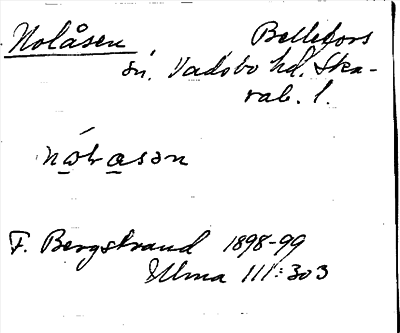 Nolåsen Bellefors
sn. Vadsbo hd. Ska-
rab. l.
F. Bergstrand 1898-99
Ulma 111:303